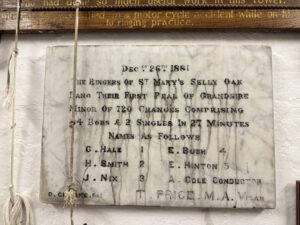 had done so much useful work in this tower.
killed in a motor cycle accident while on
to ringing practice.
DECR 26TH 1881
THE RINGERS OF ST MARY'S SELLY OAK
RANG THEIR FIRST PEAL OF GRANDSIRE
MINOR OF 720 CHANGES COMPRISING
34 BOBS & 2 SINGLES IN 27 MINUTES
NAMES AS FOLLOWS
C. HALE 1 E. BUSH 4
H. SMITH 2 E. HINTON 5
J. NIX 3 A. COLE CONDUCTOR
T. PRICE. M.A. VICAR